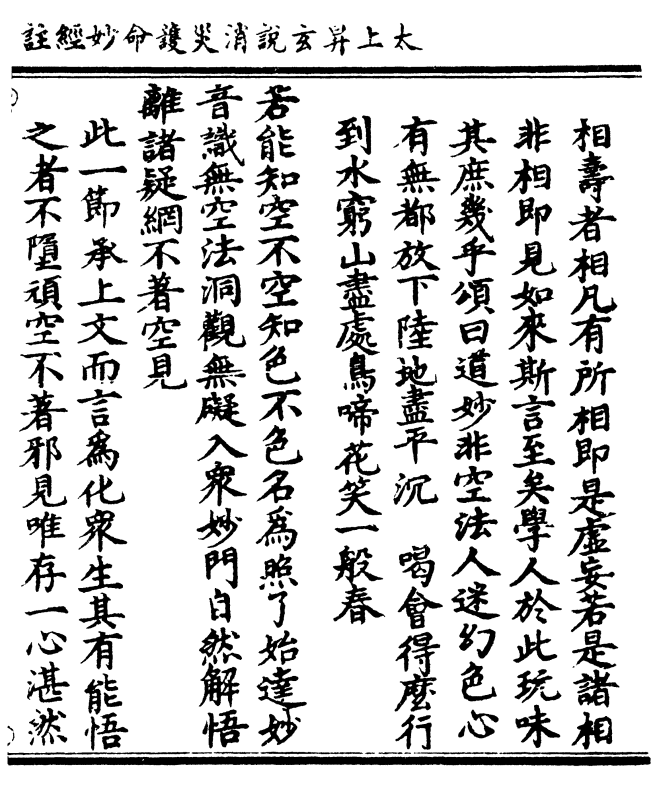 太上昇玄說消災護命妙經註
相壽者相凡有所相即是虛妄若是諸相
非相即見如來斯言至矣學人於此玩味
其庶幾乎頌曰道妙非空法人迷幻色心
有無都放下陸地盡平沉　喝會得麼行
到水窮山盡處鳥啼花笑一般春
若能知空不空知色不色名爲照了始達妙
音識無空法洞觀無礙入衆妙門自然解悟
離諸疑網不著空見
此一節承上文而言爲化衆生其有能悟
之者不墮頑空不著邪見唯存一心湛然